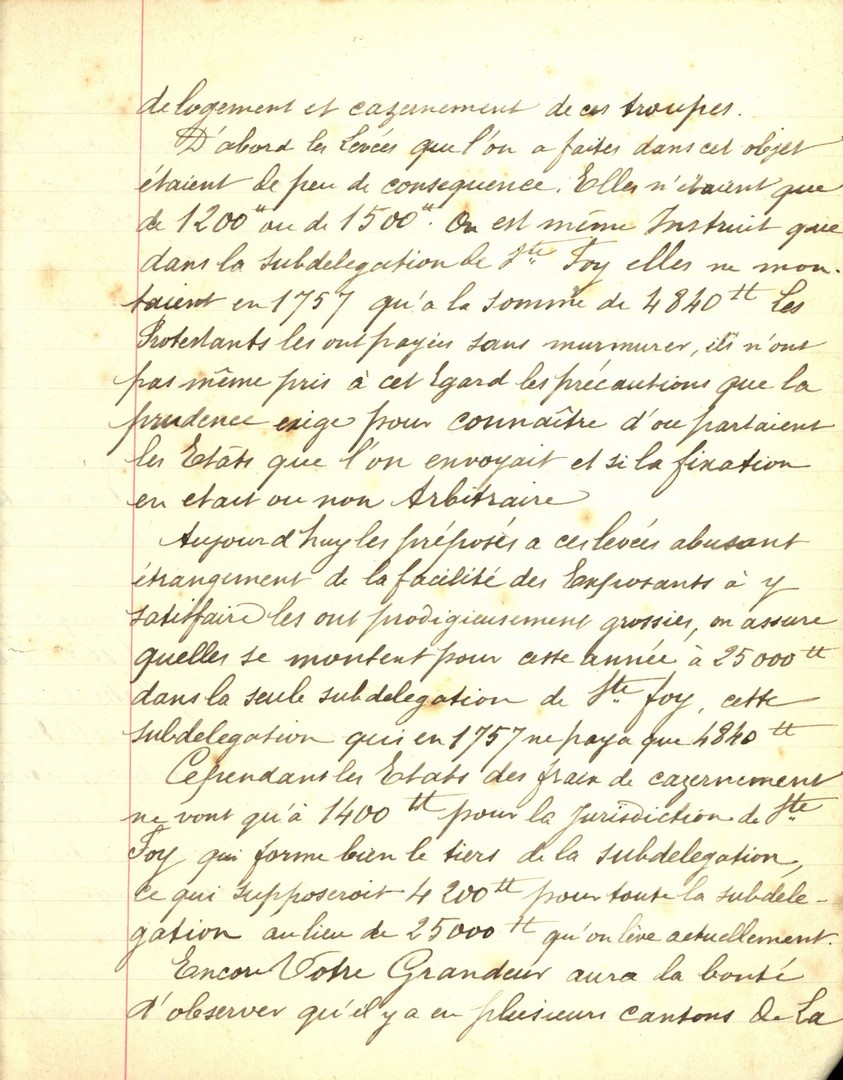 de logement et cazernement de ces troupes.
D'abord les Levées que l'on a faites dans cet objet
étaient de peu de consequence. Elles n'étaient que
de 1200" ou de 1500". On est même Instruit que
dans la subdelegation de Ste Foy elles ne mon-
taient en 1757 qu'a la somme de 4840 tt Les
Protestants les ont payées sans murmurer, ils n'ont
pas même pris à cet Egard les précautions que la
prudence exige pour connaître d'ou partaient
les Etats que l'on envoyait et si la fixation
en etait ou non Arbitraire
Aujourd'huy les préposés a ces levées abusant
étrangement de la facilité des Exposants à y
satisfaire les ont prodigieusement grossies, on assure
quelles se montent pour cette année à 25000 tt
dans la seule subdelegation de Ste foy, cette
subdelegation qui en 1757 ne paya que 4840 tt
Cependant les Etats des fraix de cazernement
ne vont qu'à 1400 tt pour la Jurisdiction de Ste
Foy qui forme bien le tiers de la subdelegation,
ce qui supposeroit 4200 tt pour toute la subdele-
gation au lieu de 25000 tt qu'on lève actuellement.
Encore Votre Grandeur aura la bonté
d'observer qu'il y a en plusieurs cantons de La